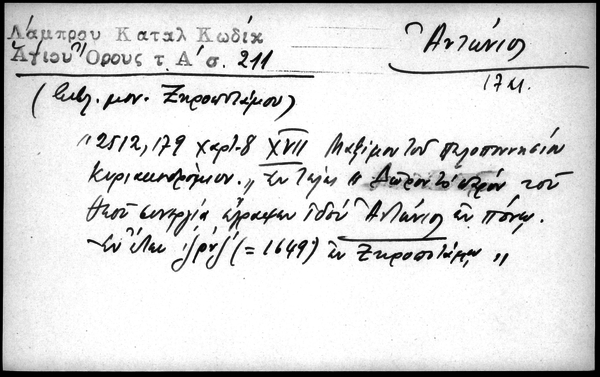 Λάμπρου Καταλ Κωδίκ
Ἁγίου Ὄρους τ. Α΄ σ. 211
Ἀντώνιος
17 αι.
(Βιβλ. μον. Ξηροποτάμου)
"2512, 179 χαρτ. 8 XVII Μαξίμου τοῦ Πελοποννησίου
Κυριακοδρόμιον. „ Ἐν τέλει „ Δῶρον τοῦ
Θεοῦ συνεργία ἔγραψεν Ἀντώνιος ἐν πόνῳ.
Ἐν ἔτει (= 1649) ἐν Ξηροποτάμου „